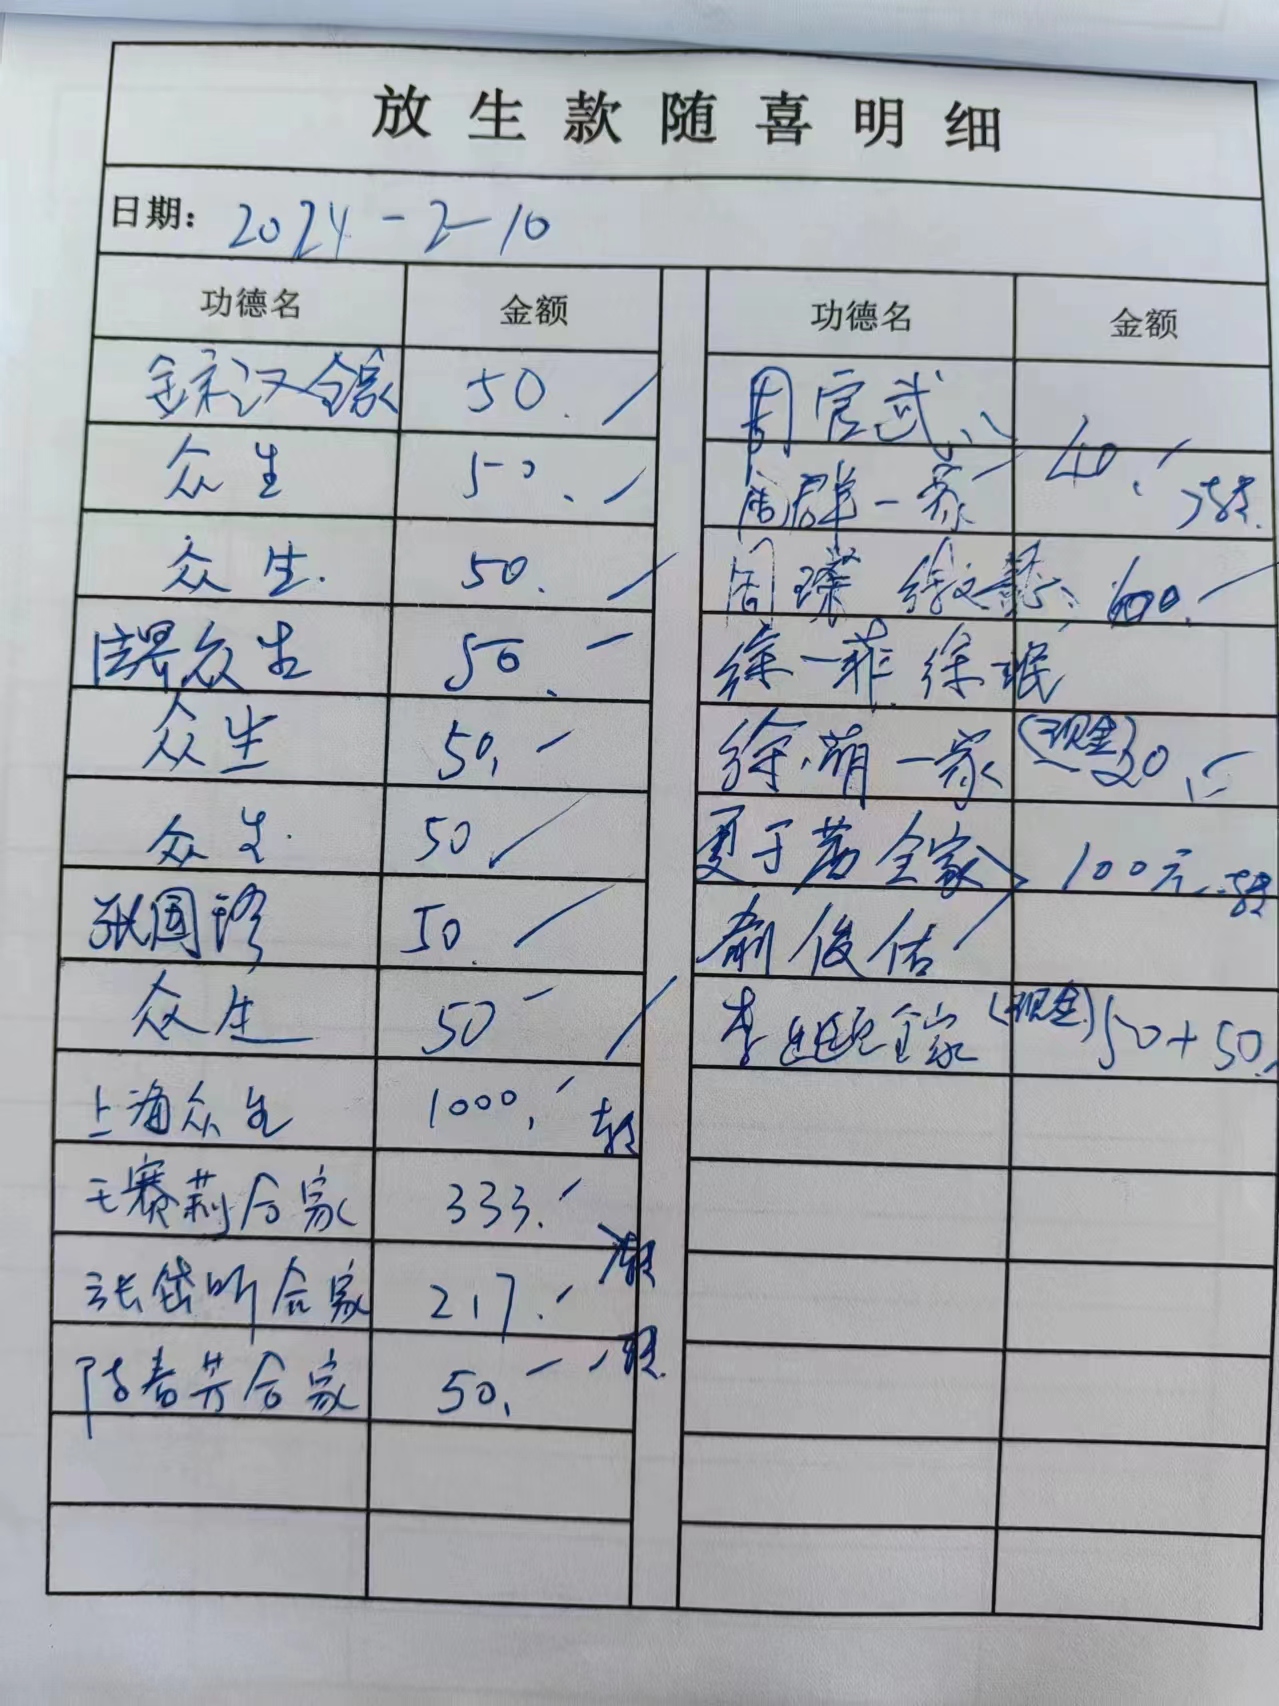 放生款随喜明细
日期: 2024-2-10
功德名 金额 功德名 金额
全家 50.
众生 50.
众生. 50.
众生 50.
众生 50.
众生. 50
张国珍 50.
众生 50
上海众生 1000. 转
王赛莉合家 333. 转
张岱昕合家 217. 转
陈春芳合家 50. 转
周官武、 40. 转
周群一家
周璨 徐文懿、
徐一菲 徐珉
徐萌一家 (现金)
夏于茜全家 100元 转
俊佑
李 全家 (现金) 50+50.